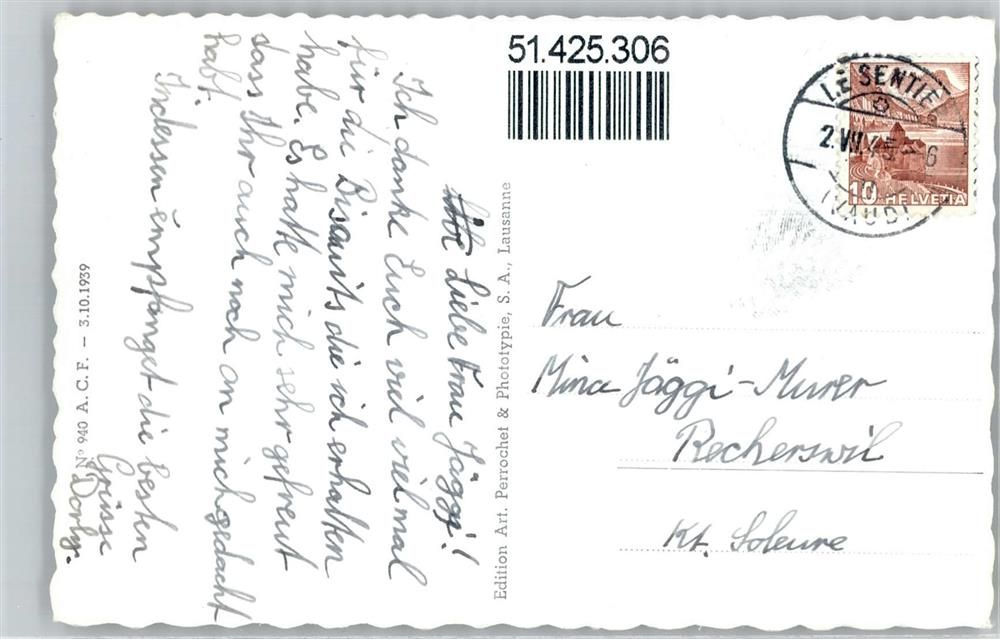 51.425.306
LE SENTIE
2. VII. 43
6
(VAUD)
10 HELVETIA
Liebe Frau Jäggi!
Ich danke Euch viel vielmal
für die Biscuits die ich erhalten
habe. Es hatte mich sehr gefreut
dass Ihr auch noch an mich gedacht
habt.
Indessen empfanget die besten
Grüsse
Dorly.
Nº 940 A. C. F. – 3.10.1939
Edition Art. Perrochet & Phototypie, S. A., Lausanne
Frau
Mina Jäggi-Murer
Recherswil
Kt. Soleure